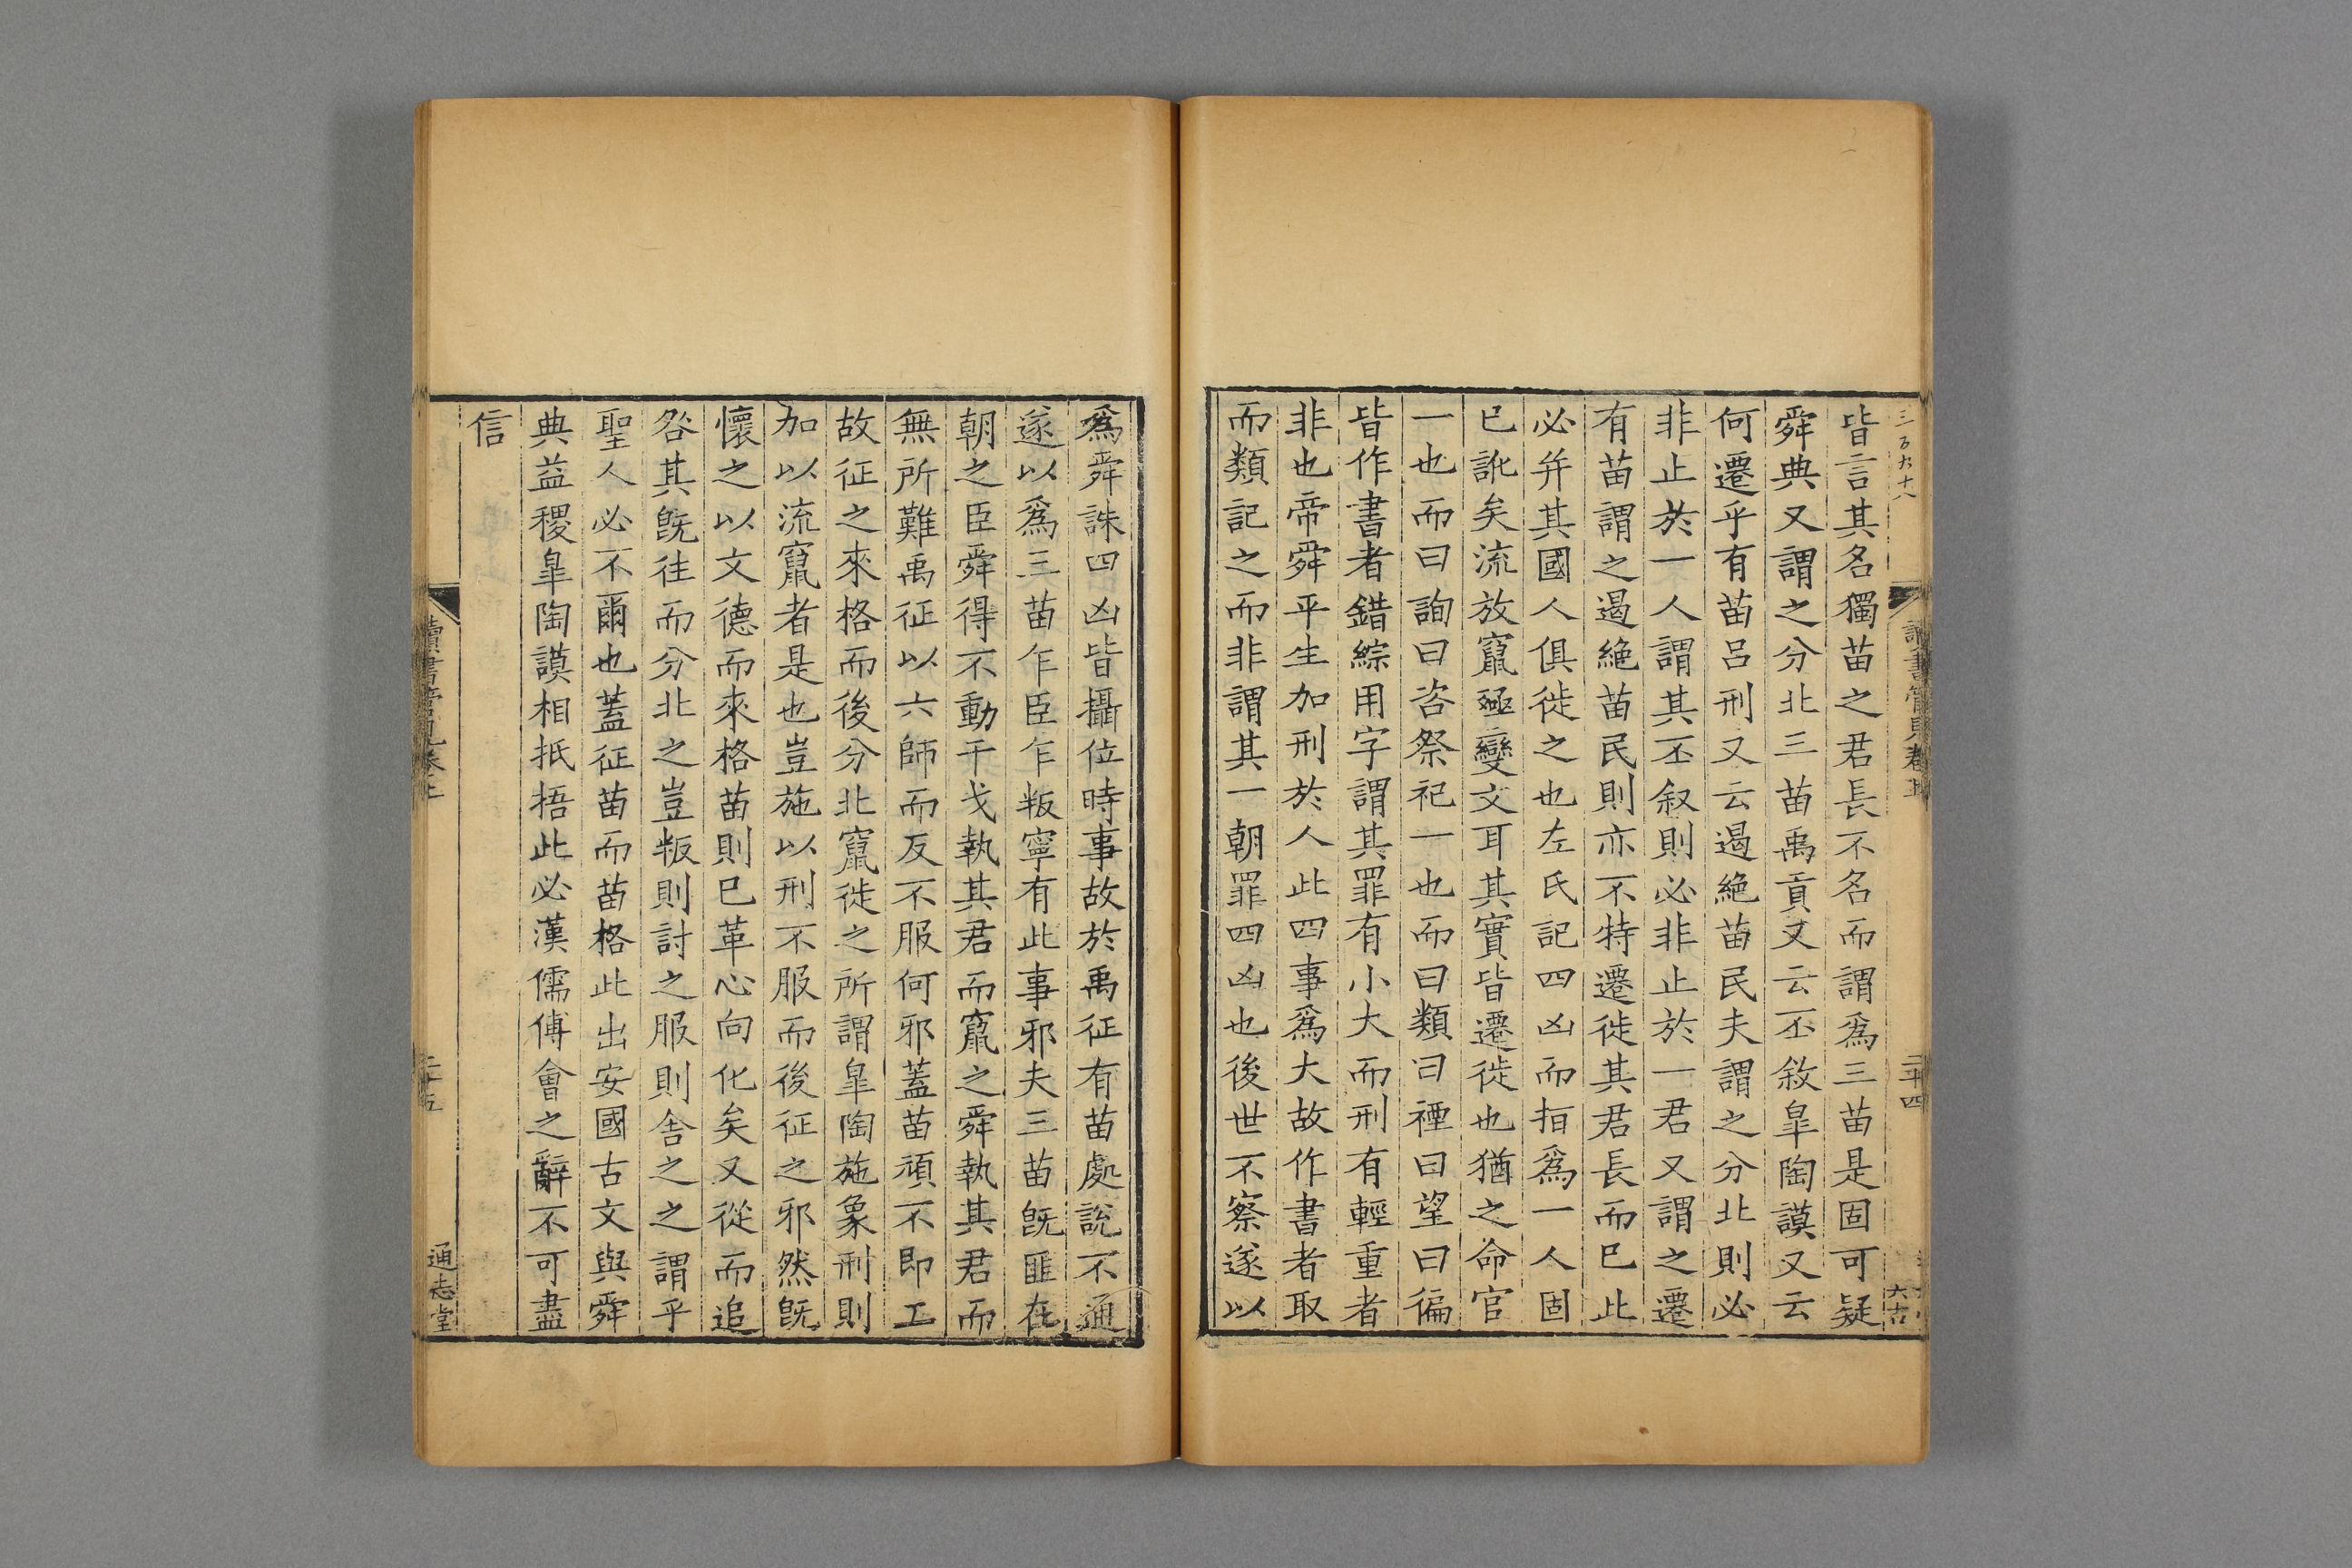 皆言其名獨苗之君長不名而謂爲三苗是固可疑
舜典又謂之分北三苗禹貢又云丕敘臯陶謨又云
何遷乎有苗呂刑又云遏絶苗民夫謂之分北則必
非止於一人謂其丕叙則必非止於一君又謂之遷
有苗謂之遏絶苗民則亦不特遷徙其君長而已此
必并其國人俱徙之也左氏記四凶而指爲一人固
已訛矣流放竄殛變文耳其實皆遷徙也猶之命官
一也而曰詢曰咨祭祀一也而曰類曰禋曰望曰徧
皆作書者錯綜用字謂其罪有小大而刑有輕重者
非也帝舜平生加刑於人此四事爲大故作書者取
而類記之而非謂其一朝罪四凶也後世不察遂以
爲舜誅四凶皆攝位時事故於禹征有苗處說不通
遂以爲三苗乍臣乍叛寧有此事邪夫三苗旣匪在
朝之臣舜得不動干戈執其君而竄之舜執其君而
無所難禹征以六師而反不服何邪蓋苗頑不即工
故征之來格而後分北竄徙之所謂臯陶施象刑則
加以流竄者是也豈施以刑不服而後征之邪然旣
懷之以文德而來格苗則已革心向化矣又從而追
咎其旣往而分北之豈叛則討之服則舍之之謂乎
聖人必不爾也蓋征苗而苗格此出安國古文與舜
典益稷臯陶謨相抵捂此必漢儒傅會之辭不可盡
信
三百九十八
讀書管見卷上
二十四
讀書管見卷上
二十五
通志堂